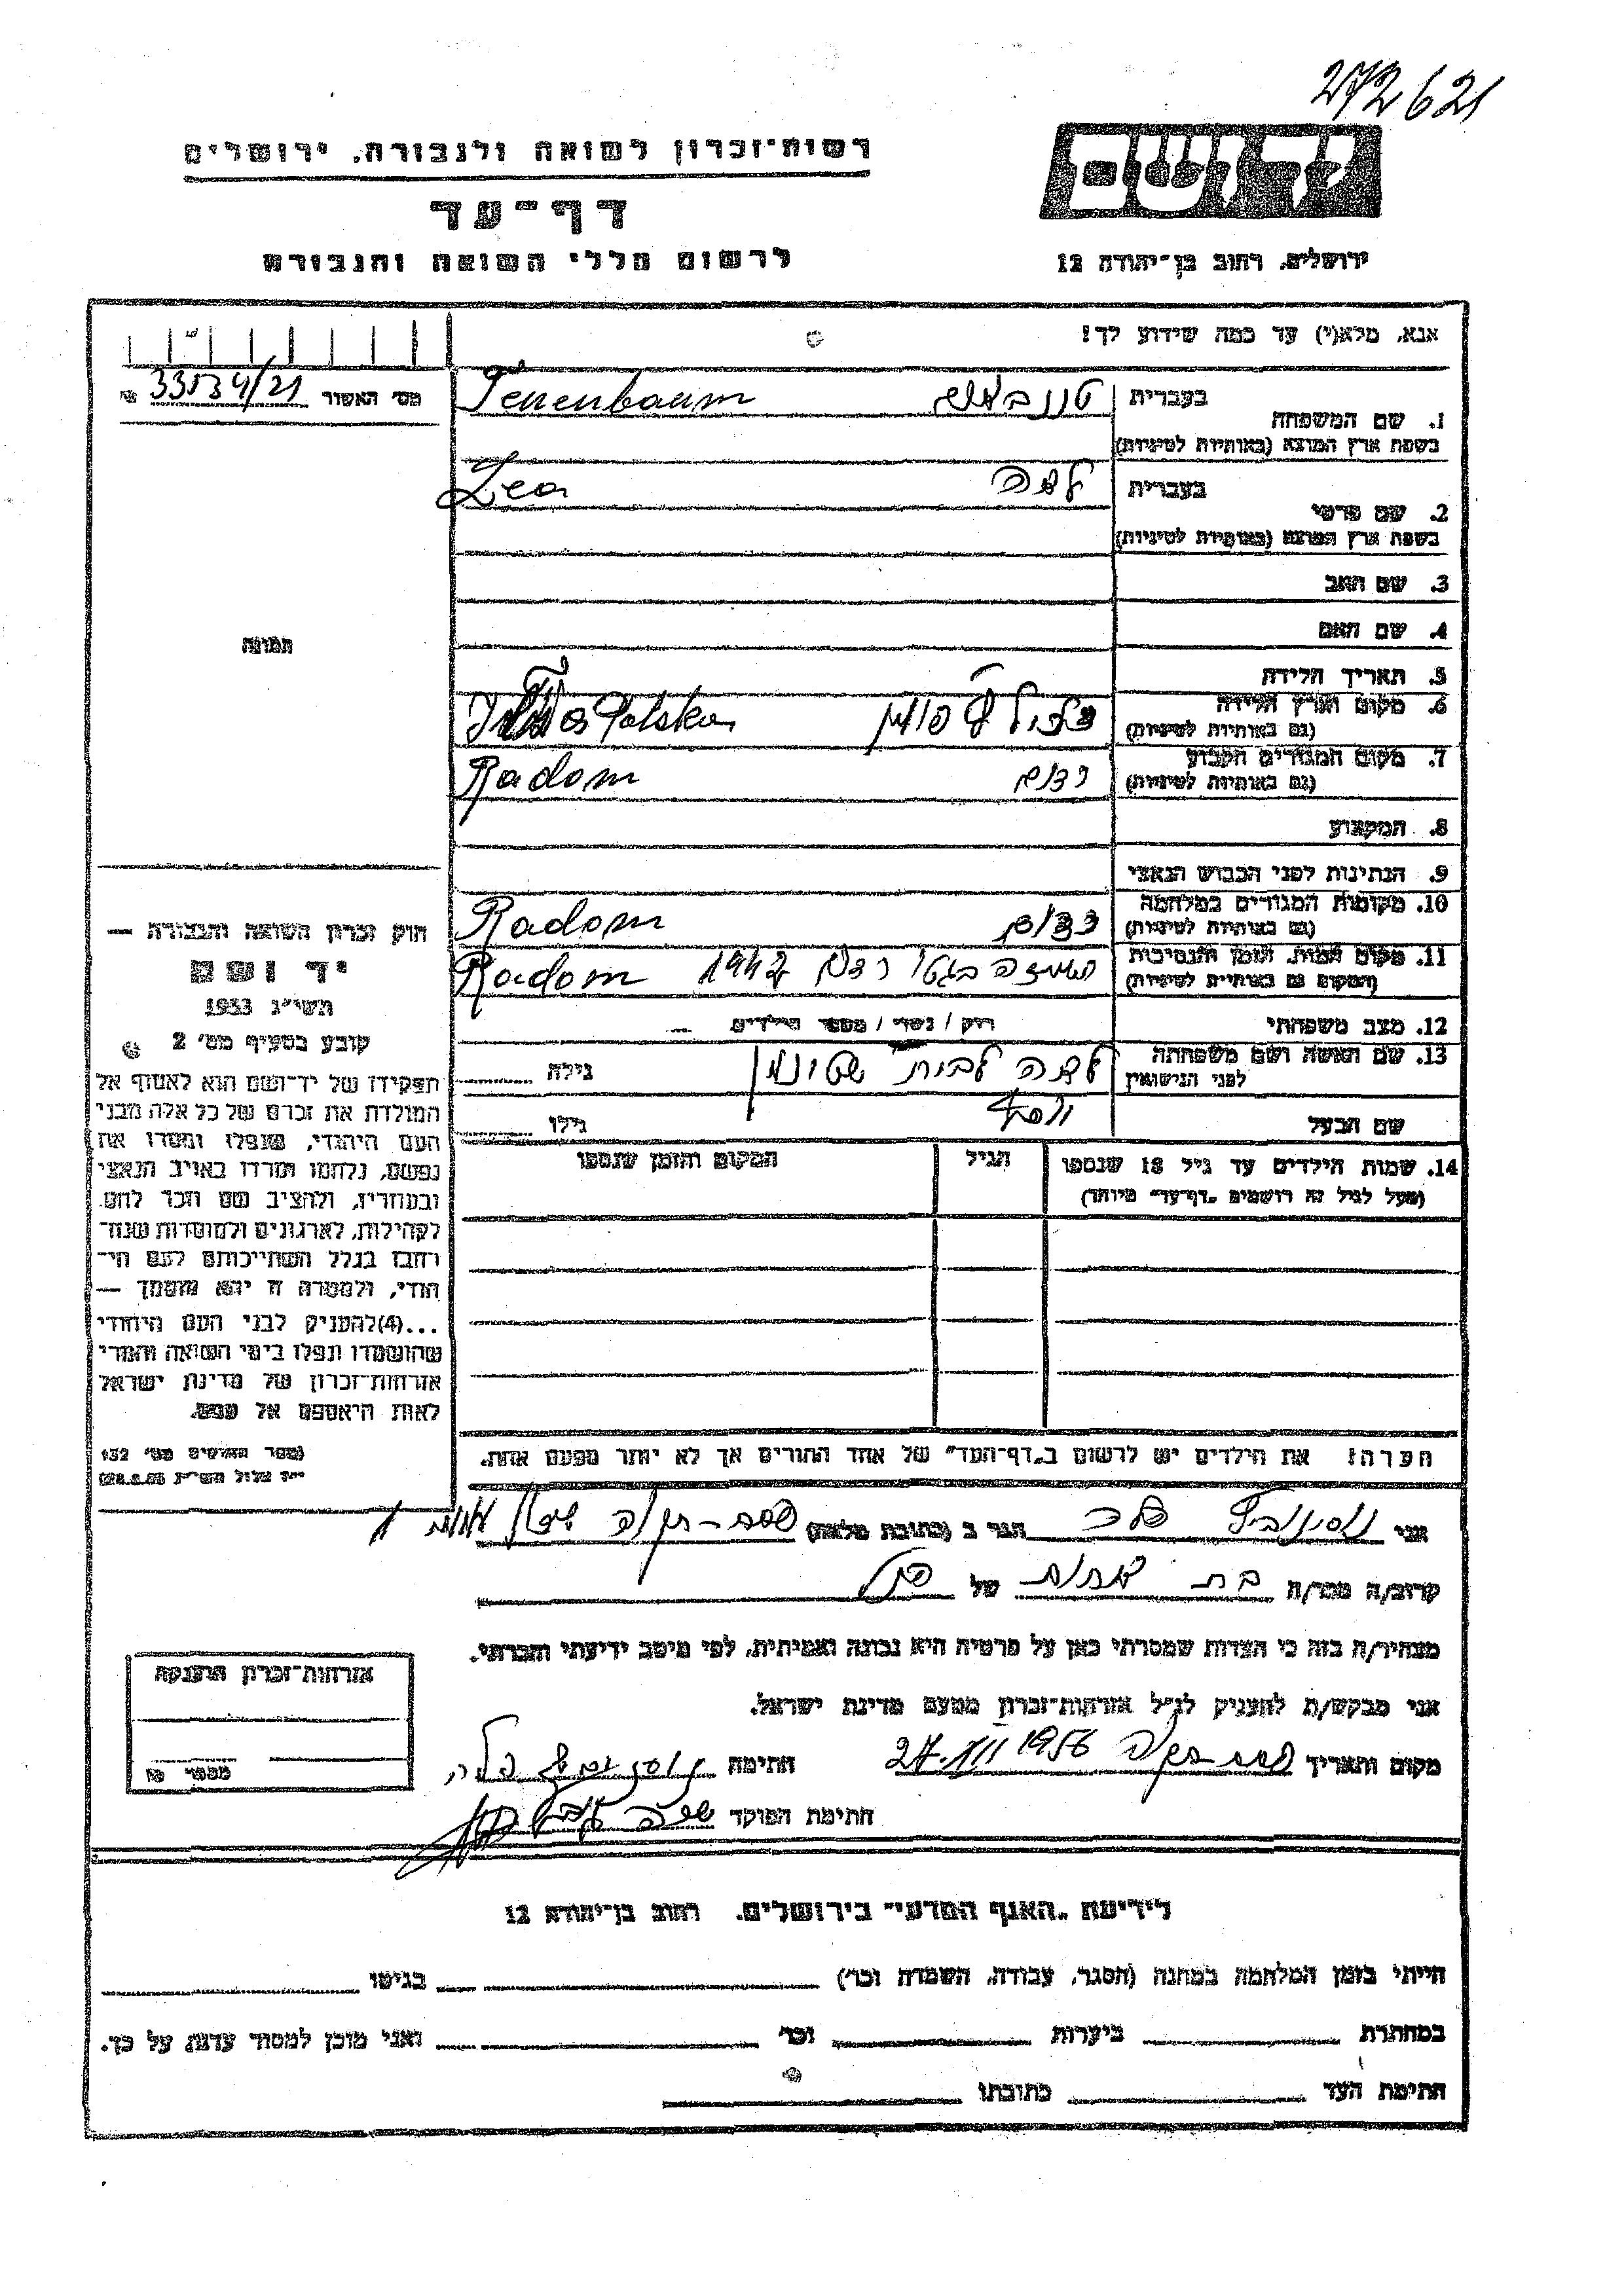 272621
יד ושם
רשות-זכרון לשואה ולגבורה, ירושלים
דף-עד
ירושלים, רחוב בן-יהודה 12
לרשום חללי השואה והגבורה
אנא, מלא(י) עד כמה שידוע לך!
מס' האשור 33534/21
1. שם המשפחה
בעברית טננבאום Tenenbaum
בשפת ארץ המוצא (באותיות לטיניות)
2. שם פרטי
בעברית לאה Lea
בשפת ארץ המוצא (באותיות לטיניות)
3. שם האב
4. שם האם
5. תאריך הלידה
6. מקום וארץ הלידה
(גם באותיות לטיניות) פולין Polska
7. מקום המגורים הקבוע
(גם באותיות לטיניות) רדום Radom
8. המקצוע
9. הנתינות לפני הכבוש הנאצי
10. מקומות המגורים במלחמה
(גם באותיות לטיניות) רדום Radom
11. מקום המות, הזמן והנסיבות
(המקום גם באותיות לטיניות) בגטו רדום 1942 Radom
12. מצב משפחתי רווק / נשוי / מספר הילדים
13. שם האשה ושם משפחתה
לפני הנישואין לאה לבית גילה
שם הבעל יוסף גילו
14. שמות הילדים עד גיל 18 שנספו
(מעל לגיל זה רושמים "דף-עד" מיוחד)
הגיל
המקום והזמן שנספו
הערה! את הילדים יש לרשום ב"דף-העד" של אחד ההורים אך לא יותר מפעם אחת.
התמונה
חוק זכרון השואה והגבורה —
יד ושם
תשי"ג 1953
קובע בסעיף מס' 2
תפקידו של יד-ושם הוא לאסוף אל
המולדת את זכרם של כל אלה מבני
העם היהודי, שנפלו ומסרו את
נפשם, נלחמו ומרדו באויב הנאצי
ובעוזריו, ולהציב שם וזכר להם,
לקהילות, לארגונים ולמוסדות שנח-
רבו בגלל השתייכותם לעם הי-
הודי, ולמטרה זו יהא מוסמך —
...(4) להעניק לבני העם היהודי
שהושמדו ונפלו בימי השואה והמרי
אזרחות-זכרון של מדינת ישראל
לאות היאספם אל עמם.
(ספר החוקים מס' 132
אני הגר ב (כתובת מלאה)
קרוב/ה מכר/ה בת של
מצהיר/ה בזה כי העדות שמסרתי כאן על פרטיה היא נכונה ואמיתית, לפי מיטב ידיעתי והכרתי.
אני מבקש/ת להעניק לנ"ל אזרחות-זכרון מטעם מדינת ישראל.
מקום ותאריך 27.VII 1956 חתימה
חתימת הפוקד
אזרחות-זכרון הוענקה
מספר
לידיעת "האגף המדעי" בירושלים, רחוב בן-יהודה 12
הייתי בזמן המלחמה במחנה (הסגר, עבודה, השמדה וכו') בגיטו
במחתרת ביערות וכו' ואני מוכן למסור עדות על כך.
חתימת העד כתובתו